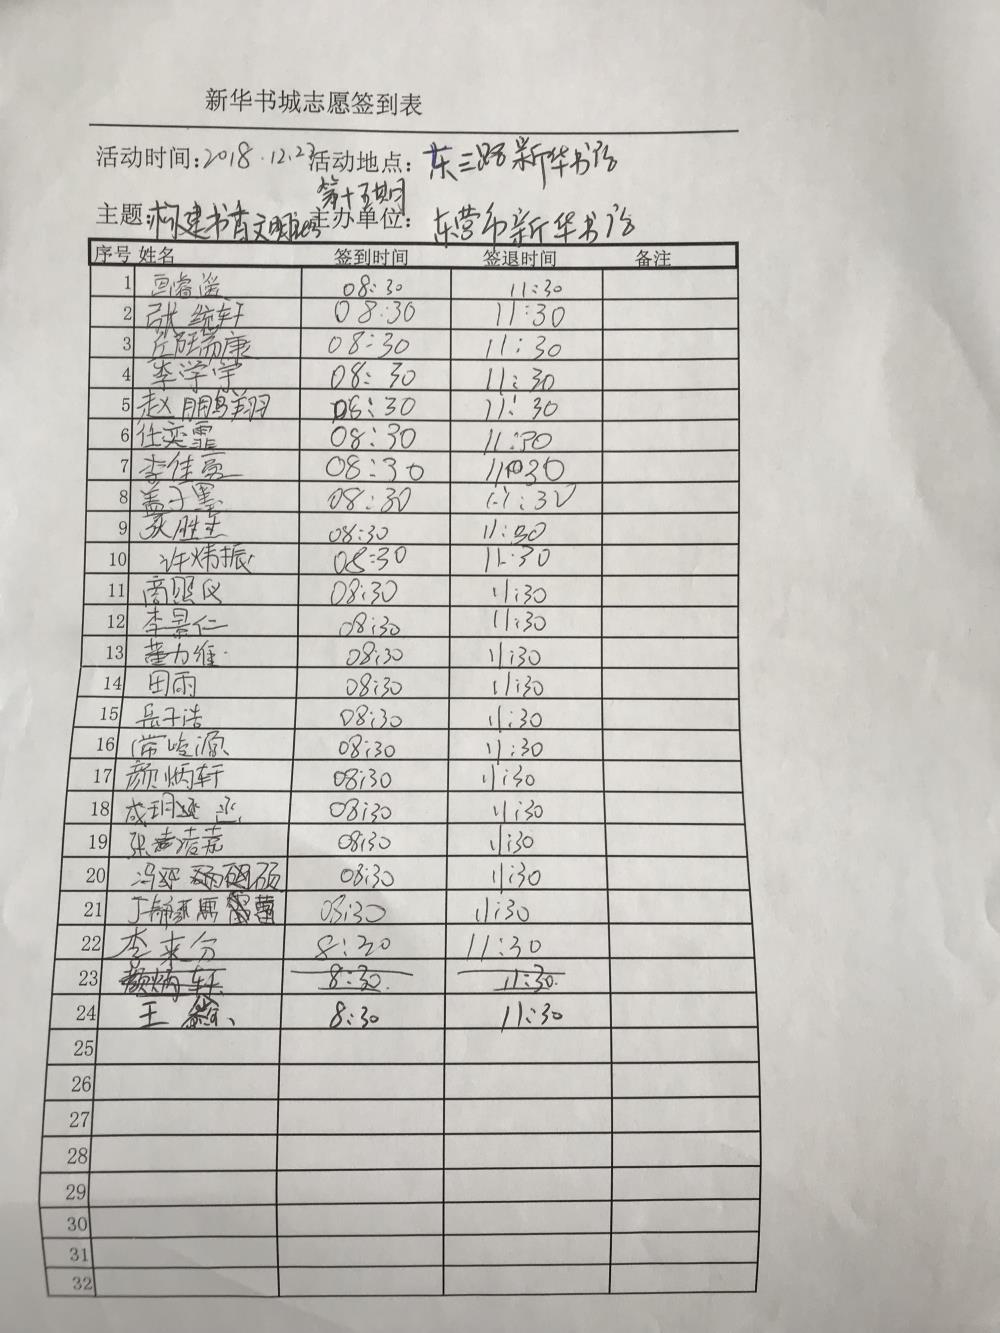 新华书城志愿签到表
活动时间:2018.12.23 活动地点:东三路新华书店
第十五期
主题:构建书香文明 主办单位:东营市新华书店
序号 姓名 签到时间 签退时间 备注
1 08:30 11:30
2 张统轩 08:30 11:30
3 丘瑞康 08:30 11:30
4 李学宇 08:30 11:30
5 赵鹏翔 08:30 11:30
6 任奕霏 08:30 11:30
7 李佳 08:30 11:30
8 盖子墨 08:30 11:30
9 胜 08:30 11:30
10 许炜振 08:30 11:30
11 商照仪 08:30 11:30
12 李景仁 08:30 11:30
13 董力维 08:30 11:30
14 田雨 08:30 11:30
15 岳子浩 08:30 11:30
16 常峻源 08:30 11:30
17 颜炳轩 08:30 11:30
18 成玥 08:30 11:30
19 张 08:30 11:30
20 冯 硕 08:30 11:30
21 丁 08:30 11:30
22 李来分 8:20 11:30
23 颜炳轩 8:30 11:30
24 王 8:30 11:30
25
26
27
28
29
30
31
32